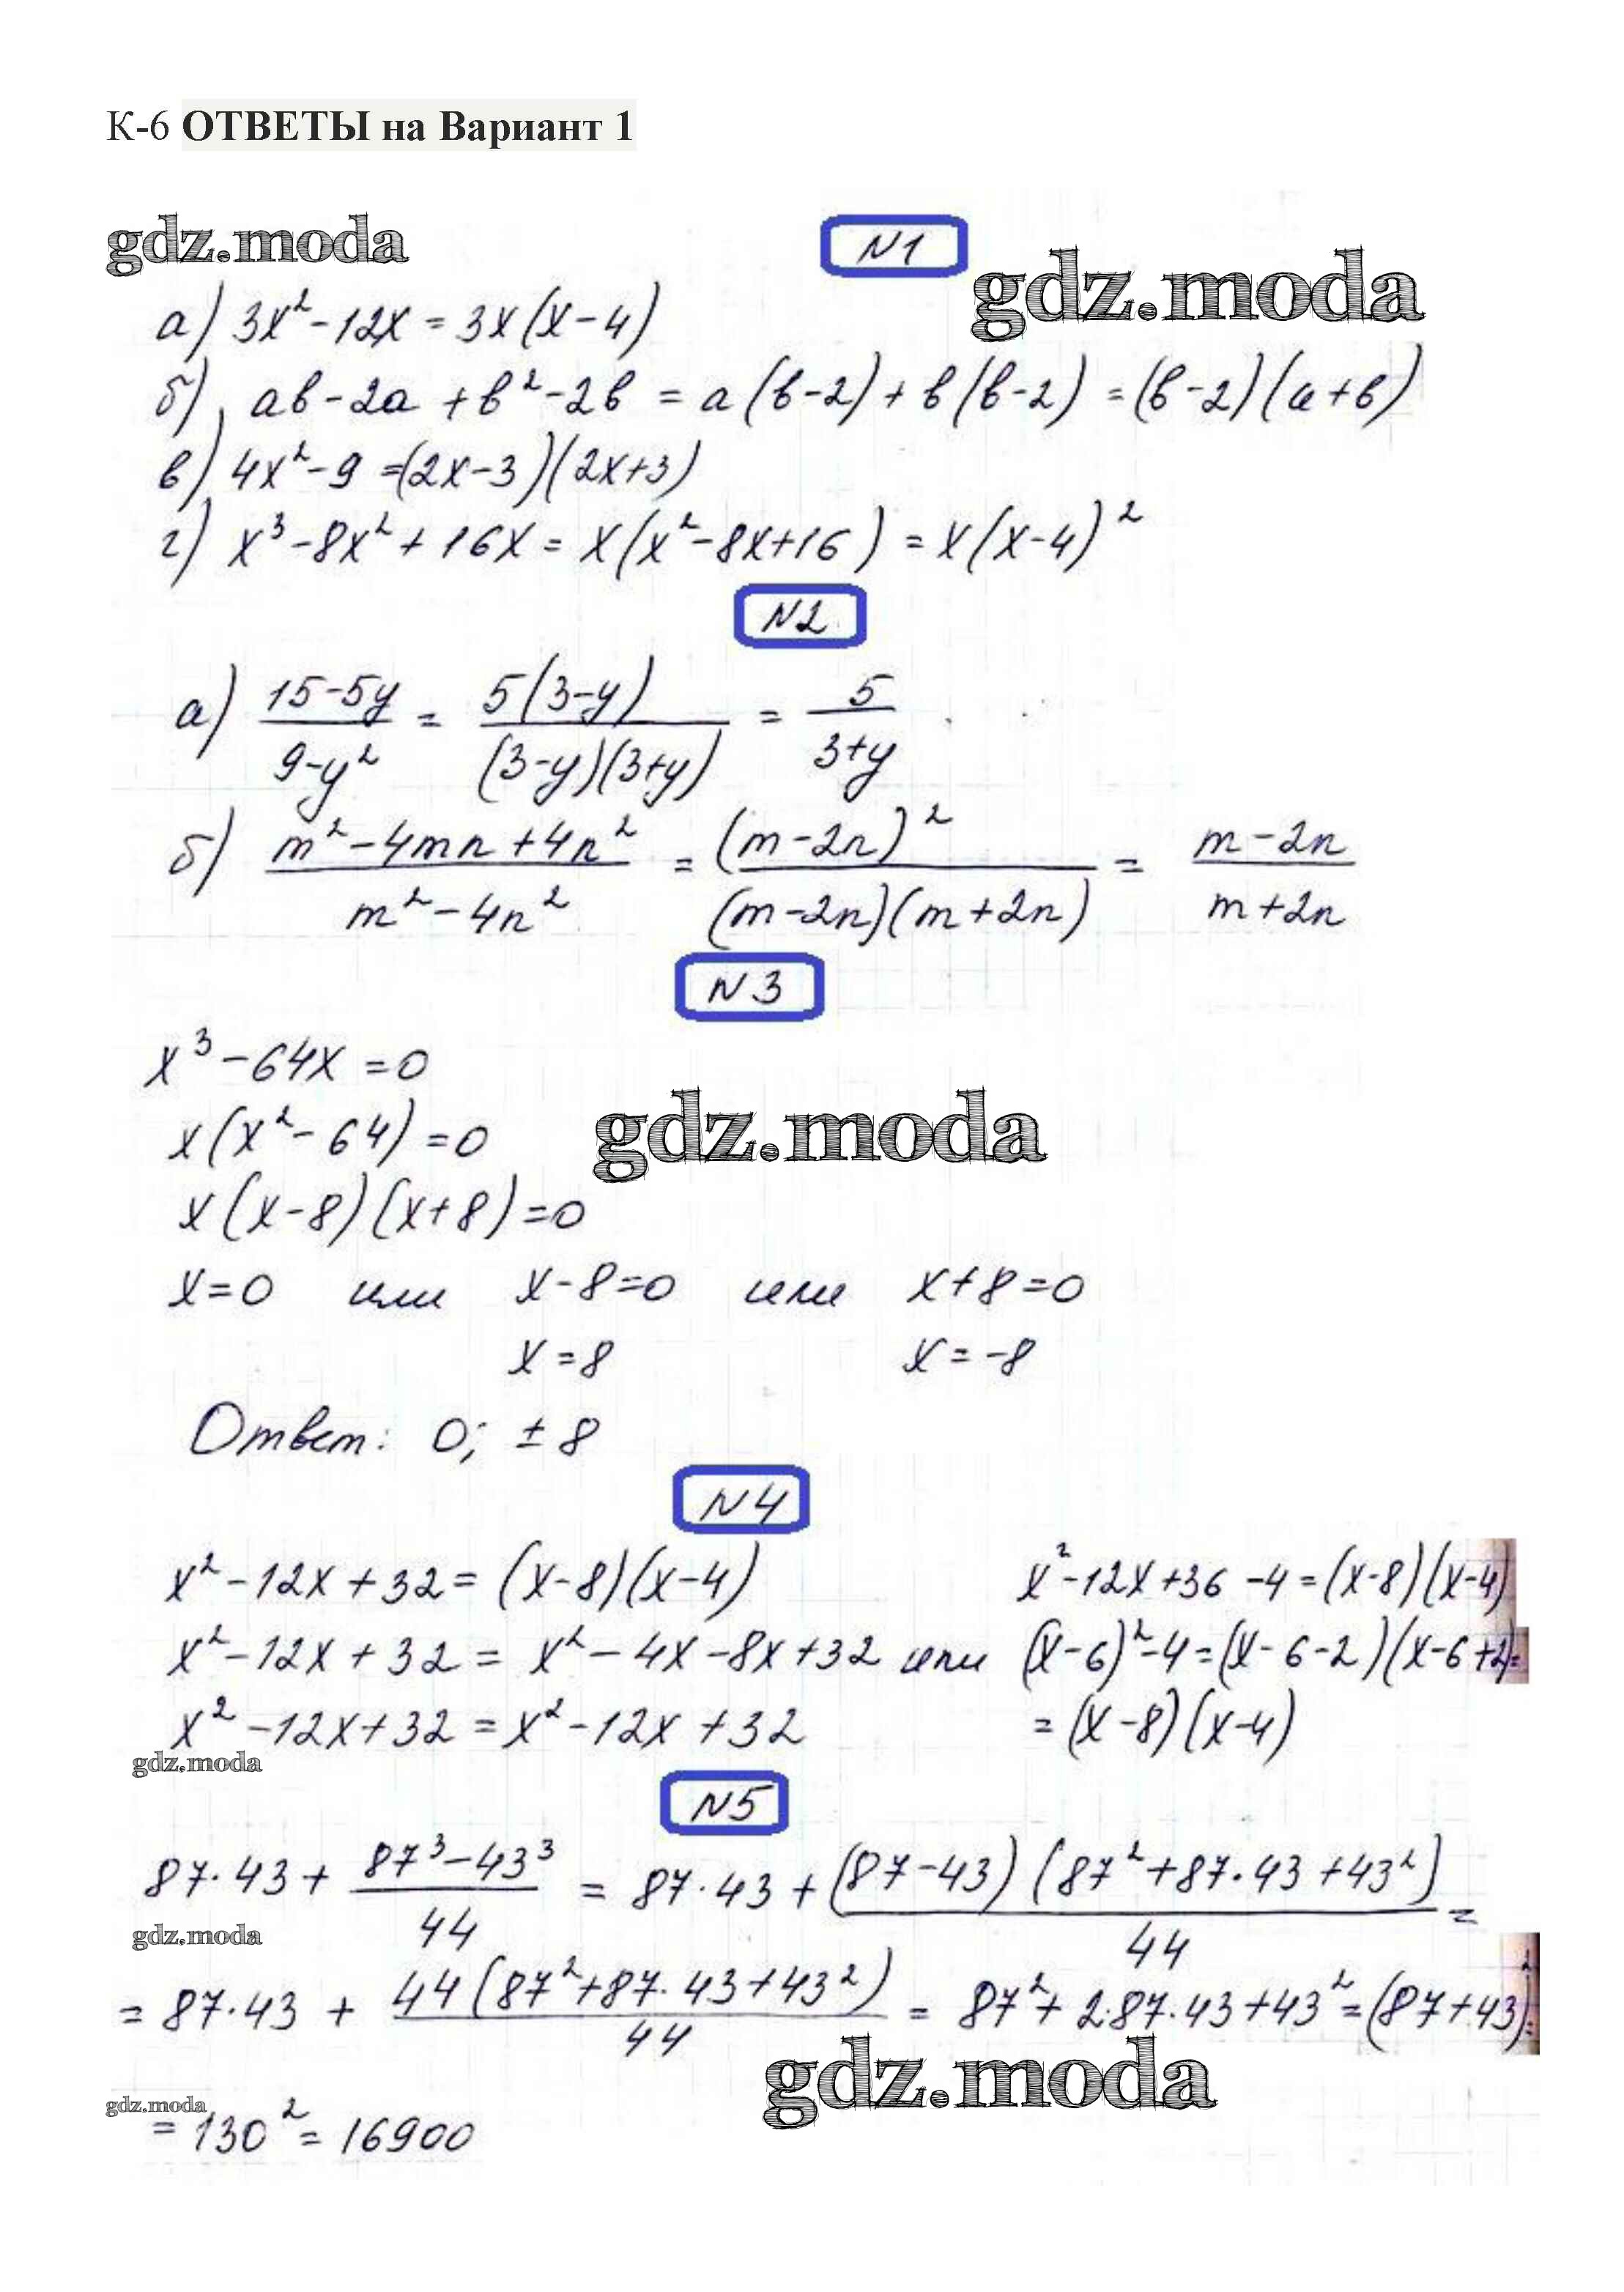 К-6 ОТВЕТЫ на Вариант 1
gdz.moda
N1
gdz.moda
а) 3x² - 12x = 3x(x - 4)
б) ab - 2a + b² - 2b = a(b - 2) + b(b - 2) = (b - 2)(a + b)
в) 4x² - 9 = (2x - 3)(2x + 3)
г) x³ - 8x² + 16x = x(x² - 8x + 16) = x(x - 4)²
N2
а) (15 - 5y)/(9 - y²) = 5(3 - y)/((3 - y)(3 + y)) = 5/(3 + y)
б) (m² - 4mn + 4n²)/(m² - 4n²) = (m - 2n)²/((m - 2n)(m + 2n)) = (m - 2n)/(m + 2n)
N3
x³ - 64x = 0
x(x² - 64) = 0
gdz.moda
x(x - 8)(x + 8) = 0
x = 0 или x - 8 = 0 или x + 8 = 0
x = 8 x = -8
Ответ: 0; ± 8
N4
x² - 12x + 32 = (x - 8)(x - 4) x² - 12x + 36 - 4 = (x - 8)(x - 4)
x² - 12x + 32 = x² - 4x - 8x + 32 или (x - 6)² - 4 = (x - 6 - 2)(x - 6 + 2) =
x² - 12x + 32 = x² - 12x + 32 = (x - 8)(x - 4)
gdz.moda
N5
87·43 + (87³ - 43³)/44 = 87·43 + (87 - 43)(87² + 87·43 + 43²)/44 =
gdz.moda
= 87·43 + 44(87² + 87·43 + 43²)/44 = 87² + 2·87·43 + 43² = (87 + 43)² =
gdz.moda
gdz.moda
= 130² = 16900